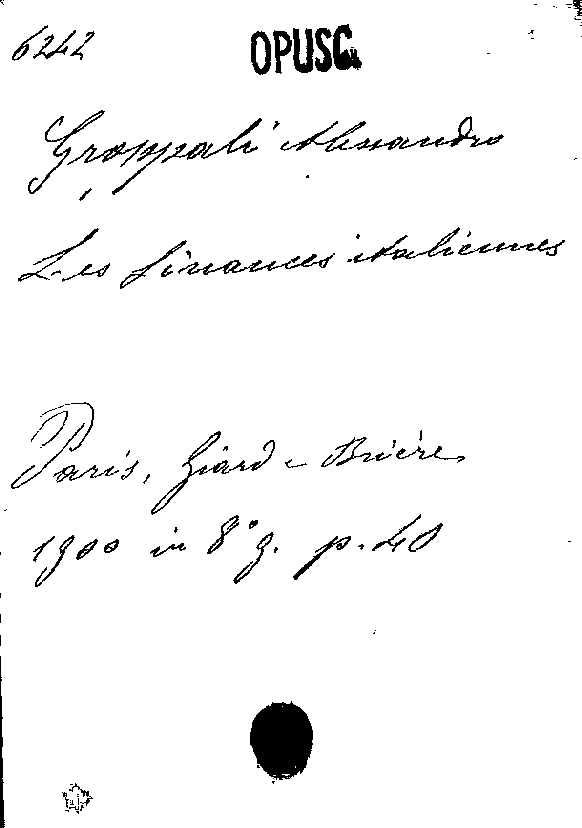 6242
OPUSC.
Groppali Alessandro
Les finances italiennes
Paris, Giard e Brière
1900 in 8° g. p. 40